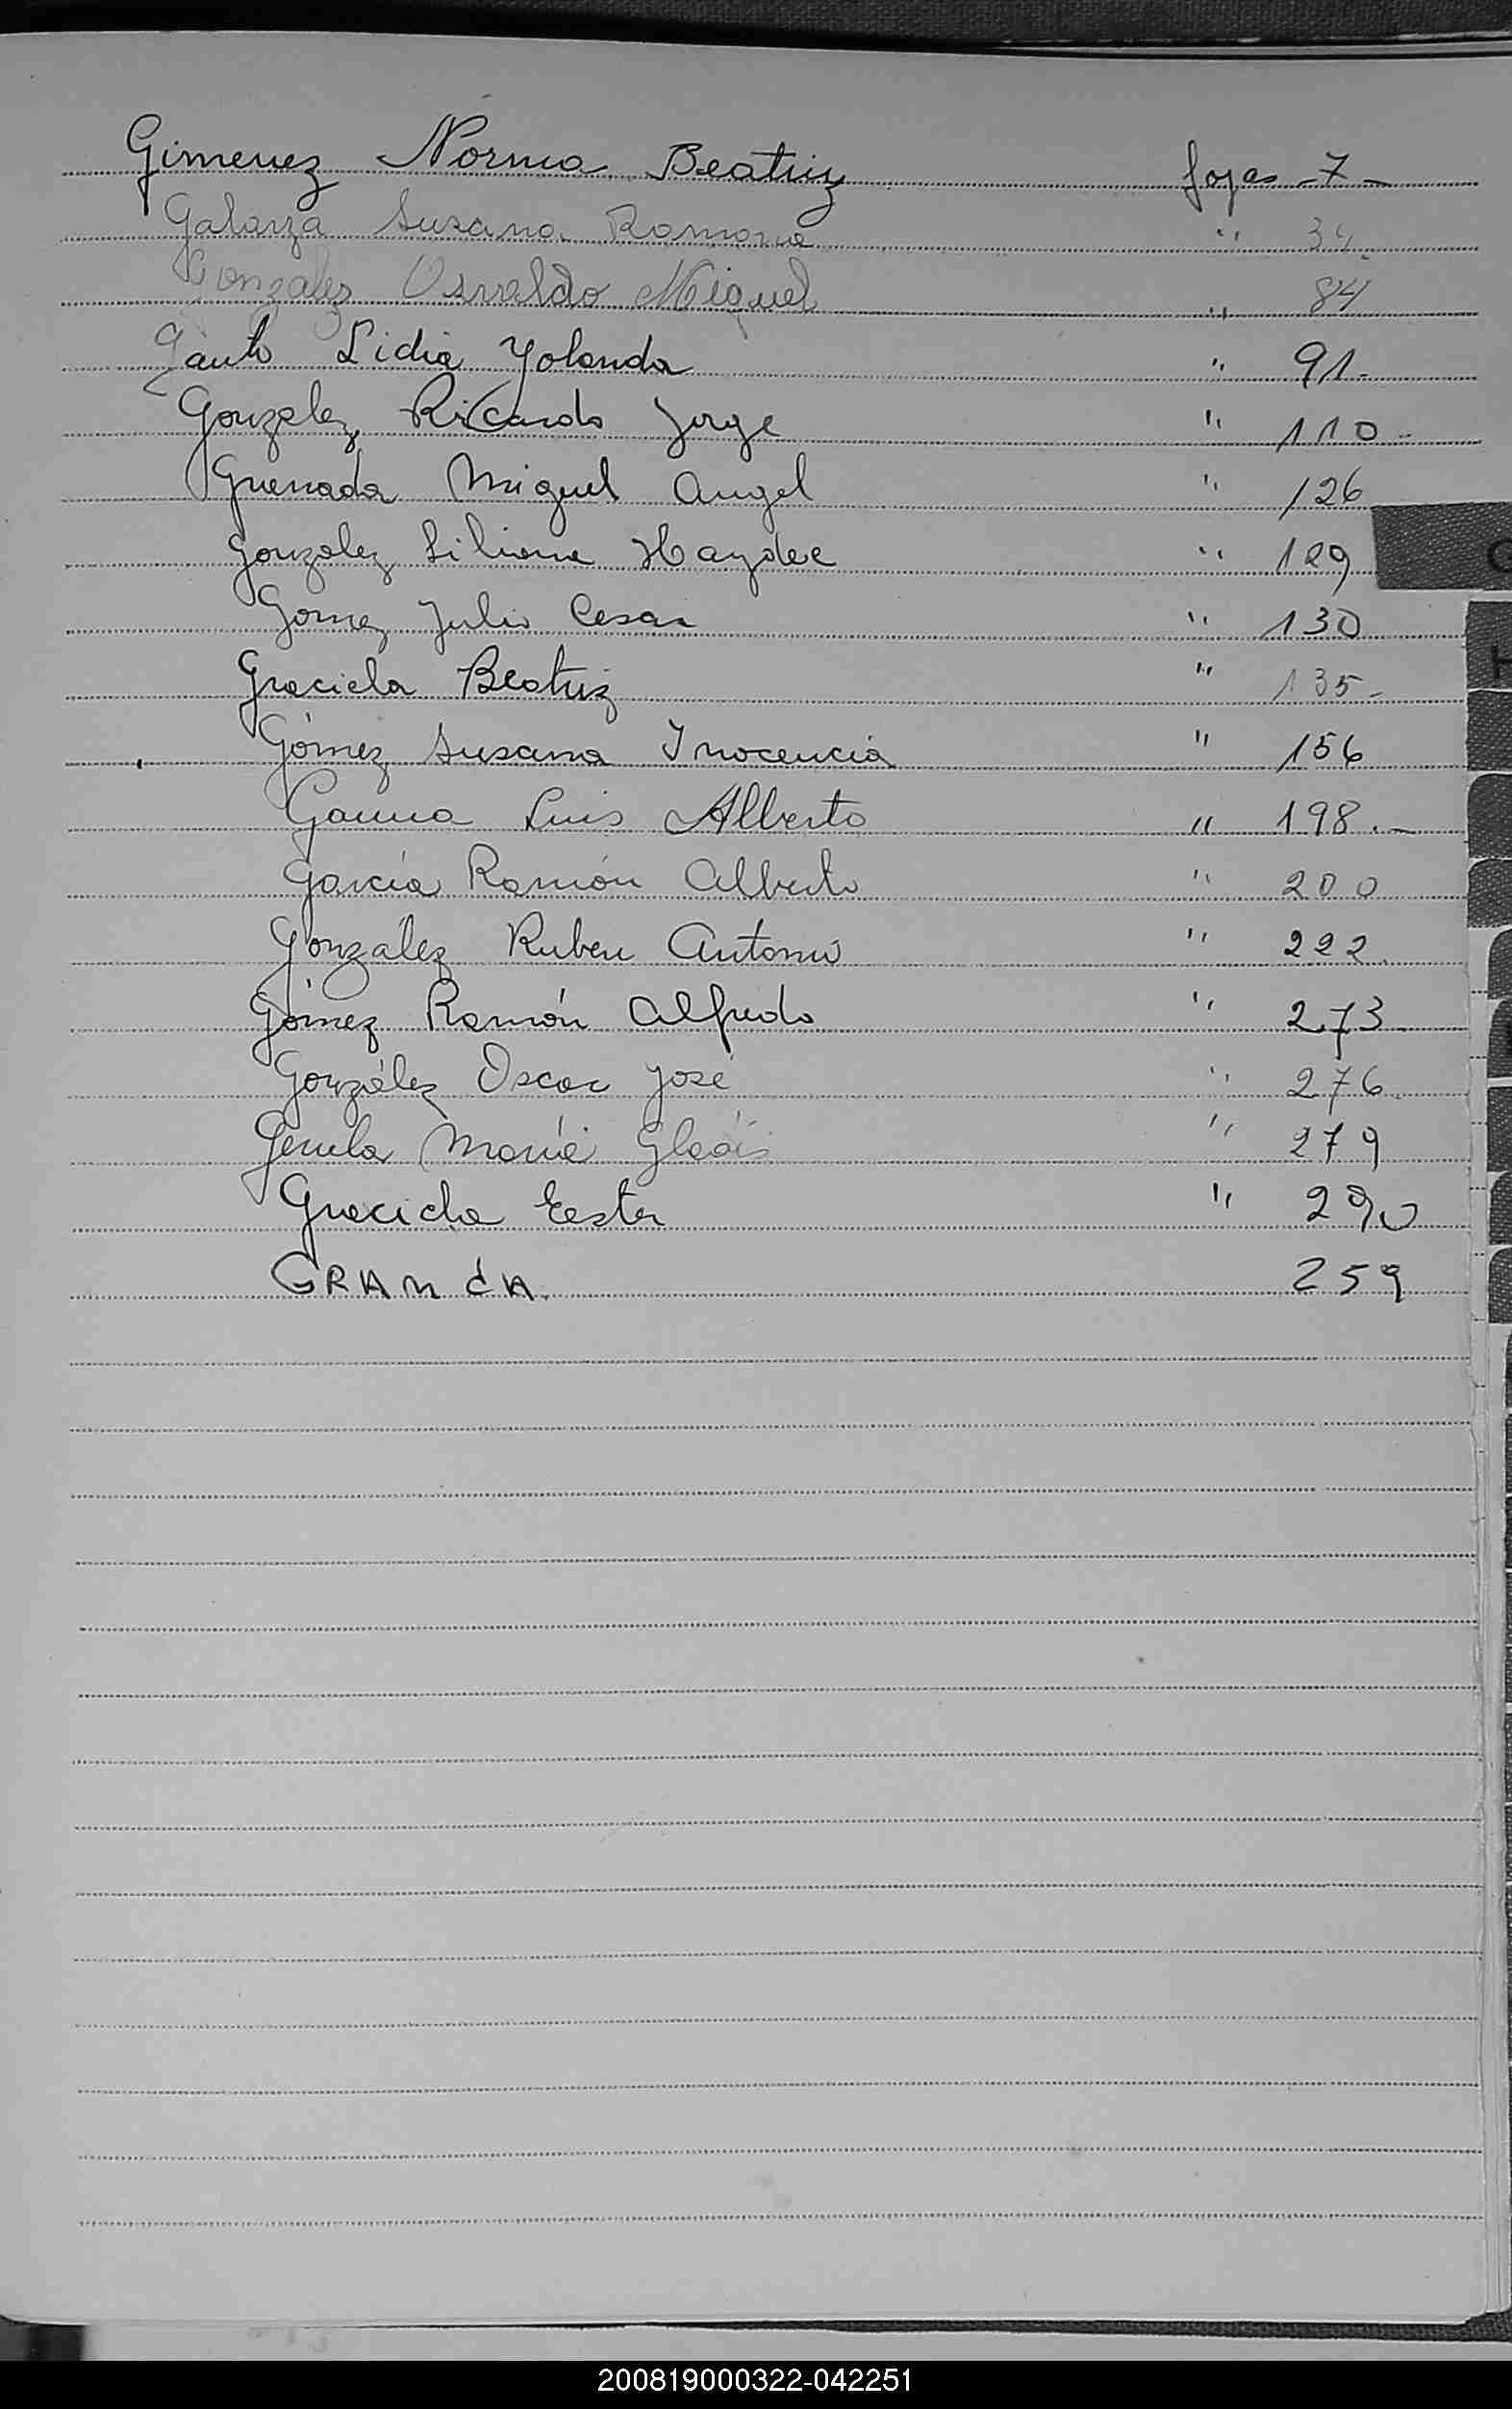 Gimenez Norma Beatriz fojas -7-
Galarza Susana Ramona " 34.
Gonzalez Osvaldo Miguel " 84
Gauto Lidia Yolanda " 91.
Gonzalez Ricardo Jorge " 110-
Grenada Miguel Angel " 126
Gonzalez Liliana Haydee " 129
Gomez Julio Cesar " 130
Graciela Beatriz " 135-
Gómez Susana Inocencia " 156
Gauna Luis Alberto " 198.-
García Ramón Alberto " 200
González Ruben Antonio " 222.
Gómez Ramón Alfredo " 273
González Oscar José " 276.
María " 279
Graciela Ester " 290
259
G
H
200819000322-042251